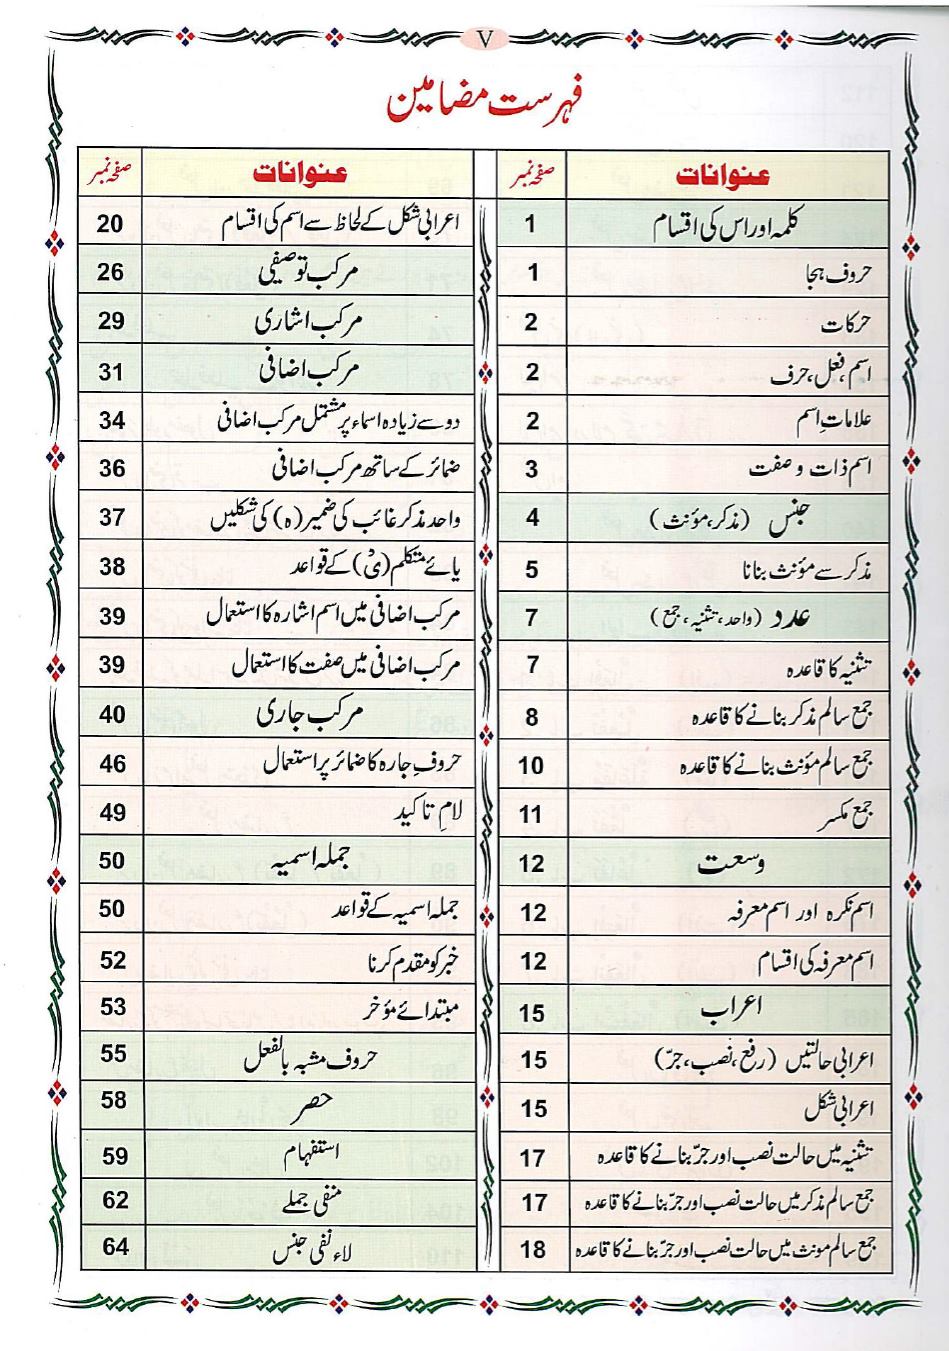 V
فہرست مضامین
عنوانات صفحہ نمبر
کلمہ اور اس کی اقسام 1
حروف ہجا 1
حرکات 2
اسم، فعل، حرف 2
علاماتِ اسم 2
اسم ذات و صفت 3
جنس (مذکر، مؤنث) 4
مذکر سے مؤنث بنانا 5
عدد (واحد، تثنیہ، جمع) 7
تثنیہ کا قاعدہ 7
جمع سالم مذکر بنانے کا قاعدہ 8
جمع سالم مؤنث بنانے کا قاعدہ 10
جمع مکسر 11
وسعت 12
اسم نکرہ اور اسم معرفہ 12
اسم معرفہ کی اقسام 12
اعراب 15
اعرابی حالتیں (رفع، نصب، جرّ) 15
اعرابی شکل 15
تثنیہ میں حالت نصب اور جرّ بنانے کا قاعدہ 17
جمع سالم مذکر میں حالت نصب اور جرّ بنانے کا قاعدہ 17
جمع سالم مونث میں حالت نصب اور جرّ بنانے کا قاعدہ 18
عنوانات صفحہ نمبر
اعرابی شکل کے لحاظ سے اسم کی اقسام 20
مرکب توصفیی 26
مرکب اشاری 29
مرکب اضافی 31
دو سے زیادہ اسماء پر مشتمل مرکب اضافی 34
ضمائر کے ساتھ مرکب اضافی 36
واحد مذکر غائب کی ضمیر (ہ) کی شکلیں 37
یائے متکلم (یْ) کے قواعد 38
مرکب اضافی میں اسم اشارہ کا استعمال 39
مرکب اضافی میں صفت کا استعمال 39
مرکب جاری 40
حروفِ جارہ کا ضمائر پر استعمال 46
لامِ تاکید 49
جملہ اسمیہ 50
جملہ اسمیہ کے قواعد 50
خبر کو مقدم کرنا 52
مبتدائے مؤخر 53
حروف مشبہ بالفعل 55
حصر 58
استفہام 59
منفی جملے 62
لاء نفی جنس 64